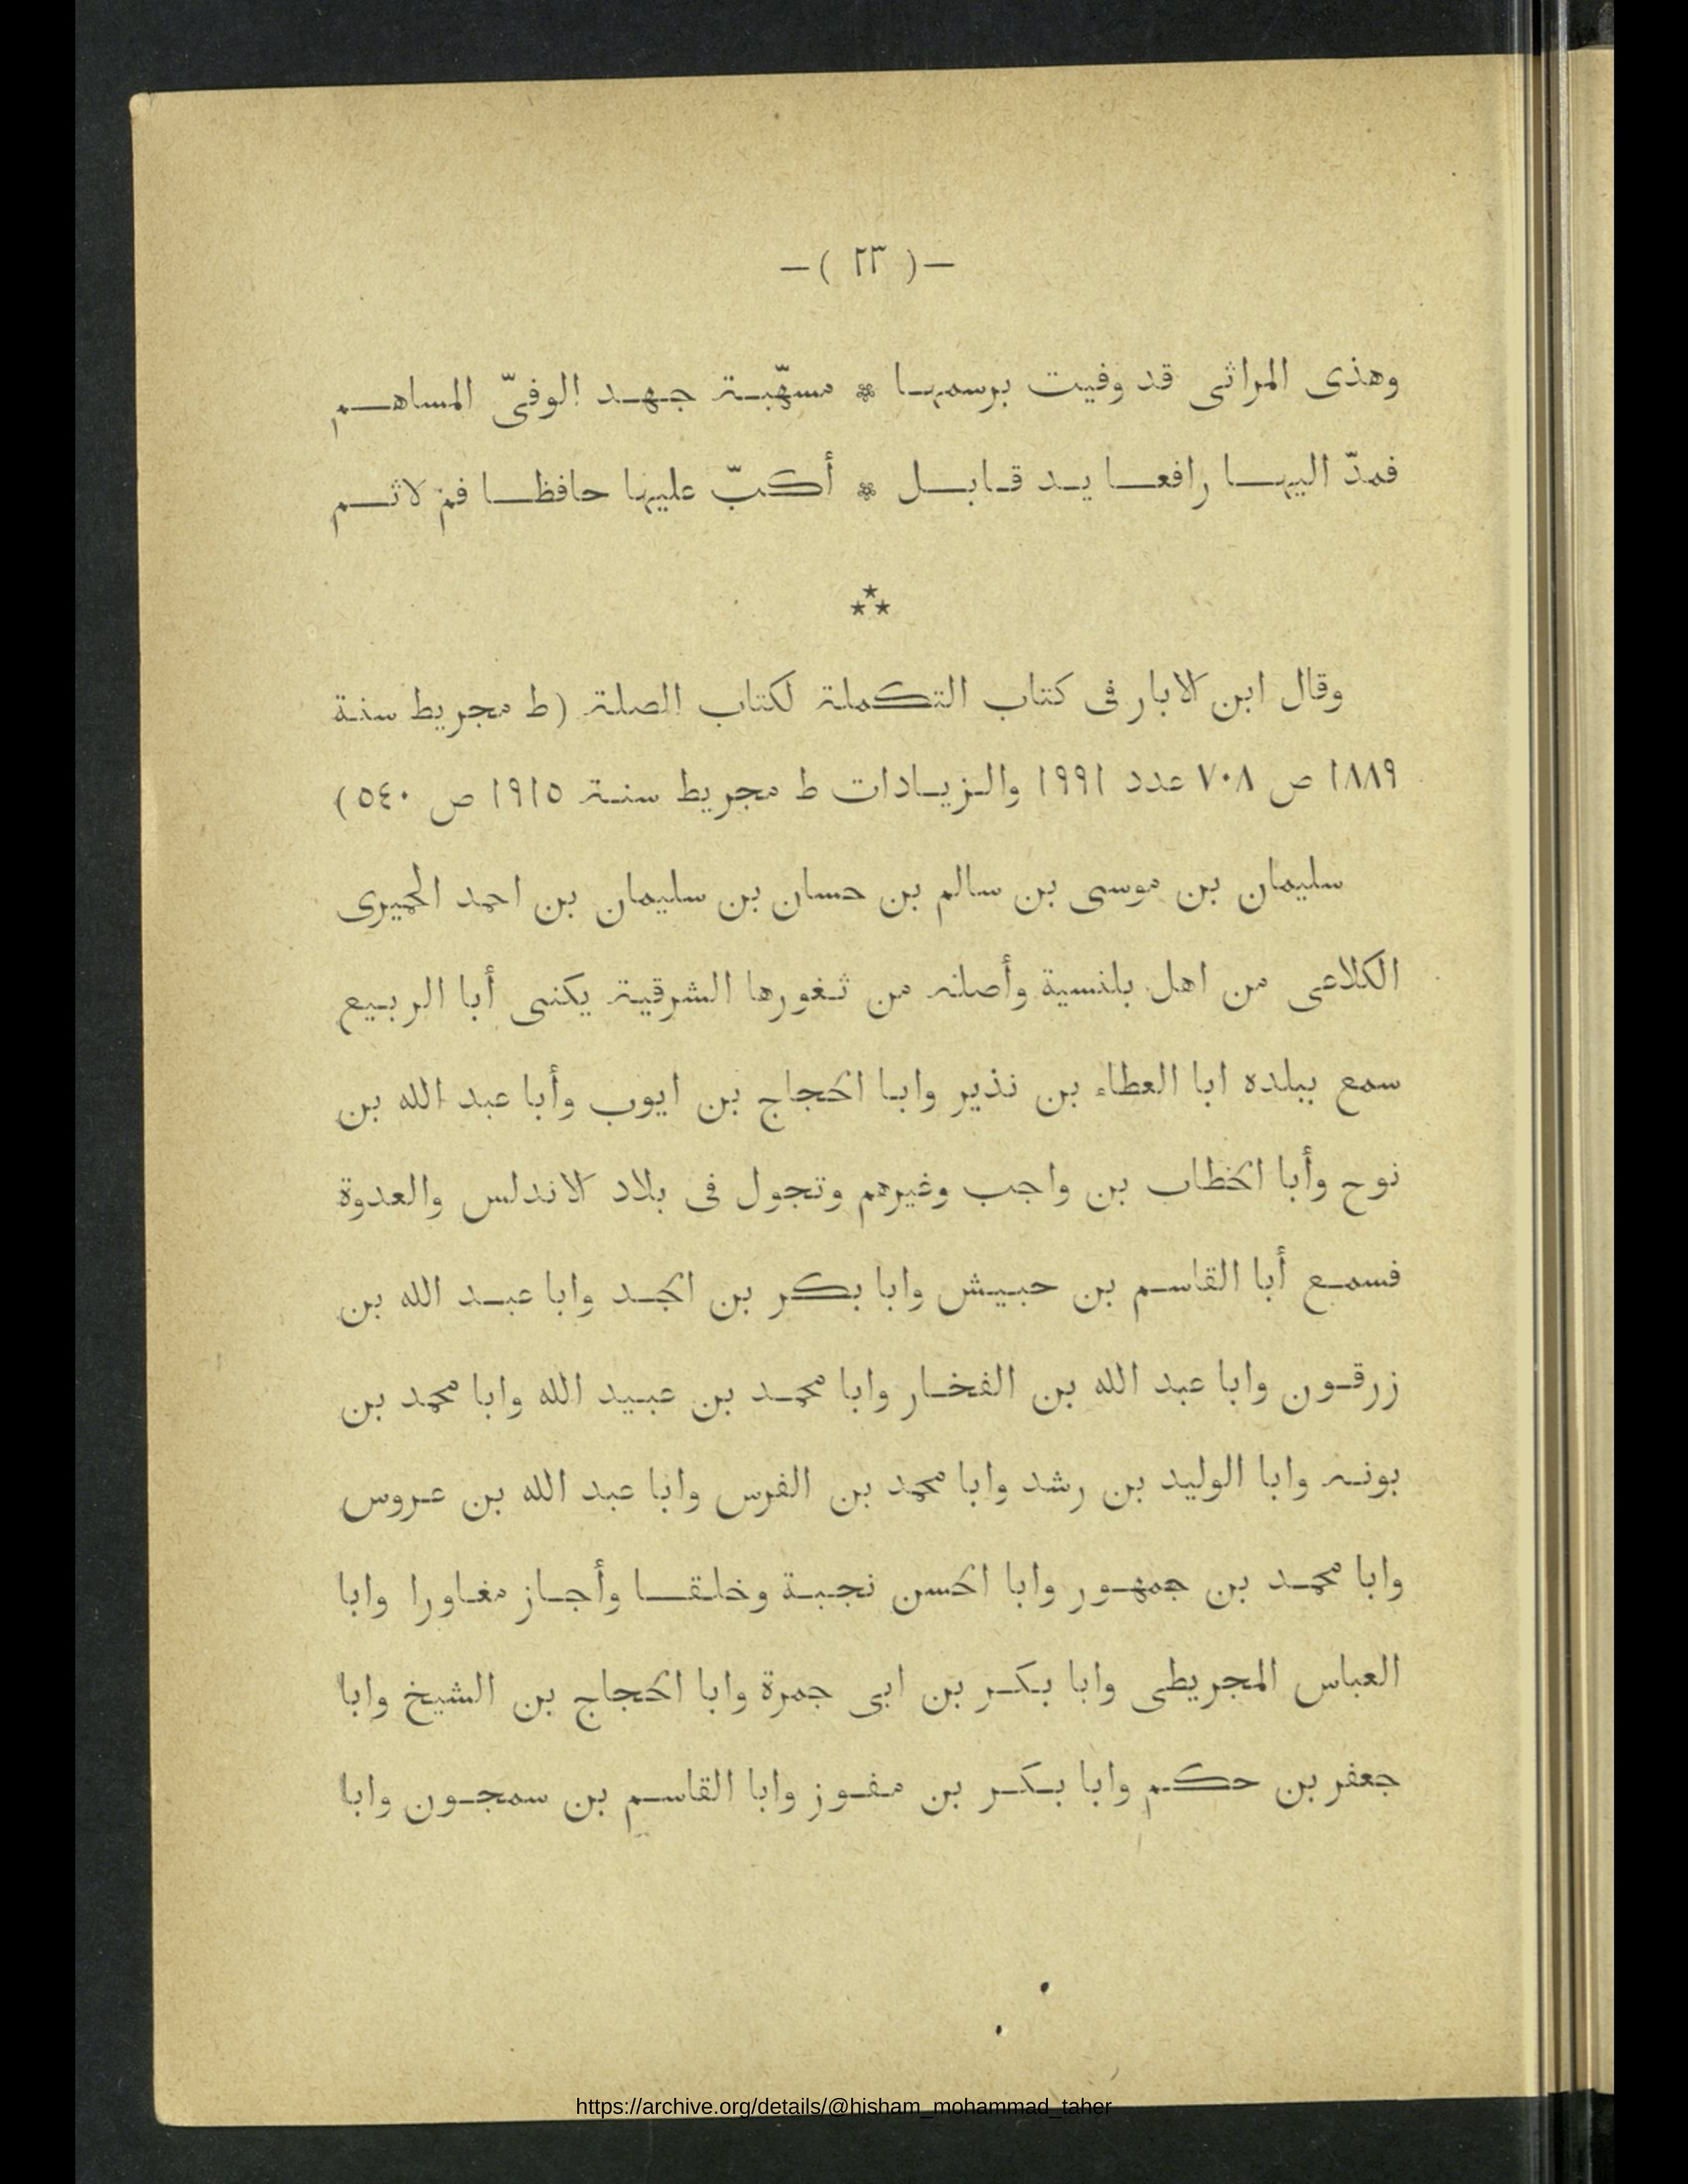 –( ٢٣ )–
وهذى المراثى قد وفيت برسمها * مسهّبة جهد الوفىّ المساهم
فمدّ اليها رافعا يد قابل * أكبّ عليها حافظا فم لاثم
⁂
وقال ابن الابار فى كتاب التكملة لكتاب الصلة (ط مجريط سنة
١٨٨٩ ص ٧٠٨ عدد ١٩٩١ والزيادات ط مجريط سنة ١٩١٥ ص ٥٤٠)
سليمان بن موسى بن سالم بن حسان بن سليمان بن احمد الحميرى
الكلاعى من اهل بلنسية وأصله من ثغورها الشرقية يكنى أبا الربيع
سمع ببلده ابا العطاء بن نذير وابا الحجاج بن ايوب وأبا عبد الله بن
نوح وأبا الخطاب بن واجب وغيرهم وتجول فى بلاد الاندلس والعدوة
فسمع أبا القاسم بن حبيش وابا بكر بن الجد وابا عبد الله بن
زرقون وابا عبد الله بن الفخار وابا محمد بن عبيد الله وابا محمد بن
بونه وابا الوليد بن رشد وابا محمد بن الفرس وابا عبد الله بن عروس
وابا محمد بن جمهور وابا الحسن نجبة وخلقا وأجاز مغاورا وابا
العباس المجريطى وابا بكر بن ابى جمرة وابا الحجاج بن الشيخ وابا
جعفر بن حكم وابا بكر بن مفوز وابا القاسم بن سمجون وابا
https://archive.org/details/@hisham_mohammad_taher